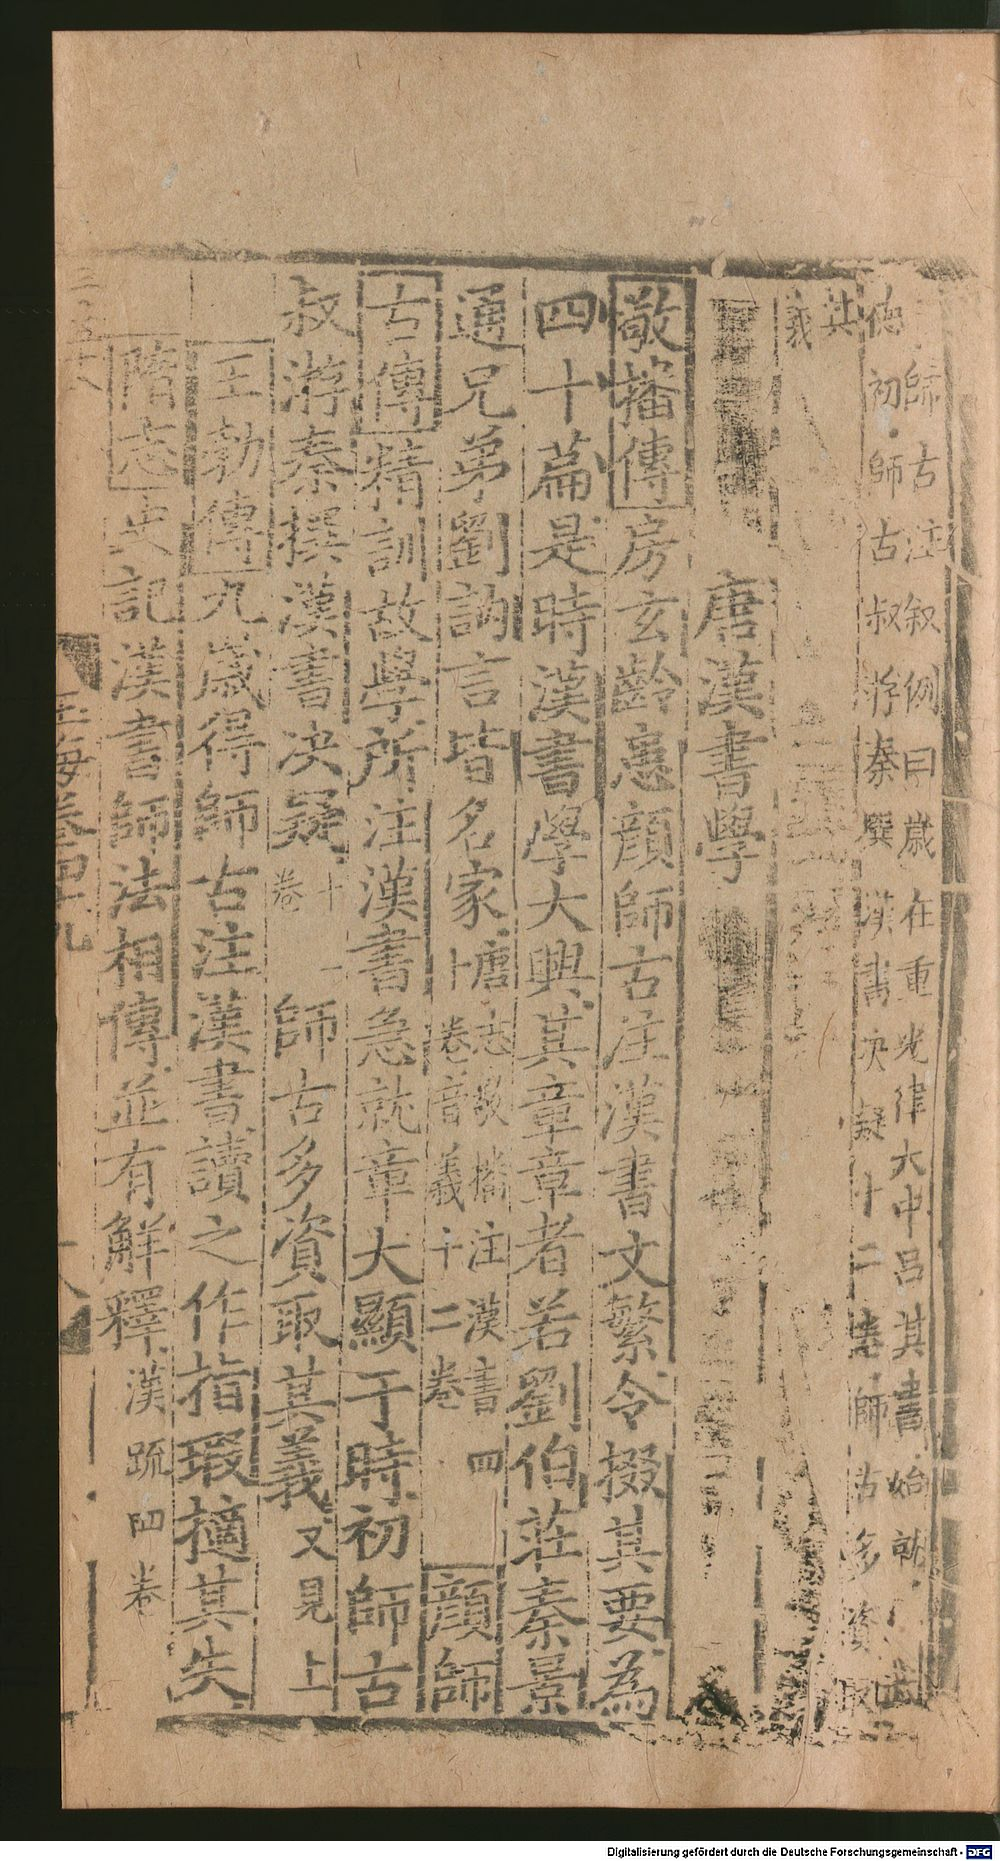 師古注叙例曰歲在重光律大中呂其書始就
德初師古叔游秦撰漢書決疑十二卷師古多資取
其
義
唐漢書學
敬播傳房玄齡患顔師古注漢書文繁令掇其要為
四十篇是時漢書學大興其章章者若劉伯莊秦景
通兄弟劉訥言皆名家唐志敬播注漢書四
十卷音義十二卷
顔師
古傳精訓故學所注漢書急就章大顯于時初師古
叔游秦撰漢書決疑十二
卷
師古多資取其義又見上
王勃傳九歲得師古注漢書讀之作指瑕擿其失
隋志史記漢書師法相傳並有解釋漢疏四卷
玉海卷四九
Digitalisierung gefördert durch die Deutsche Forschungsgemeinschaft - DFG